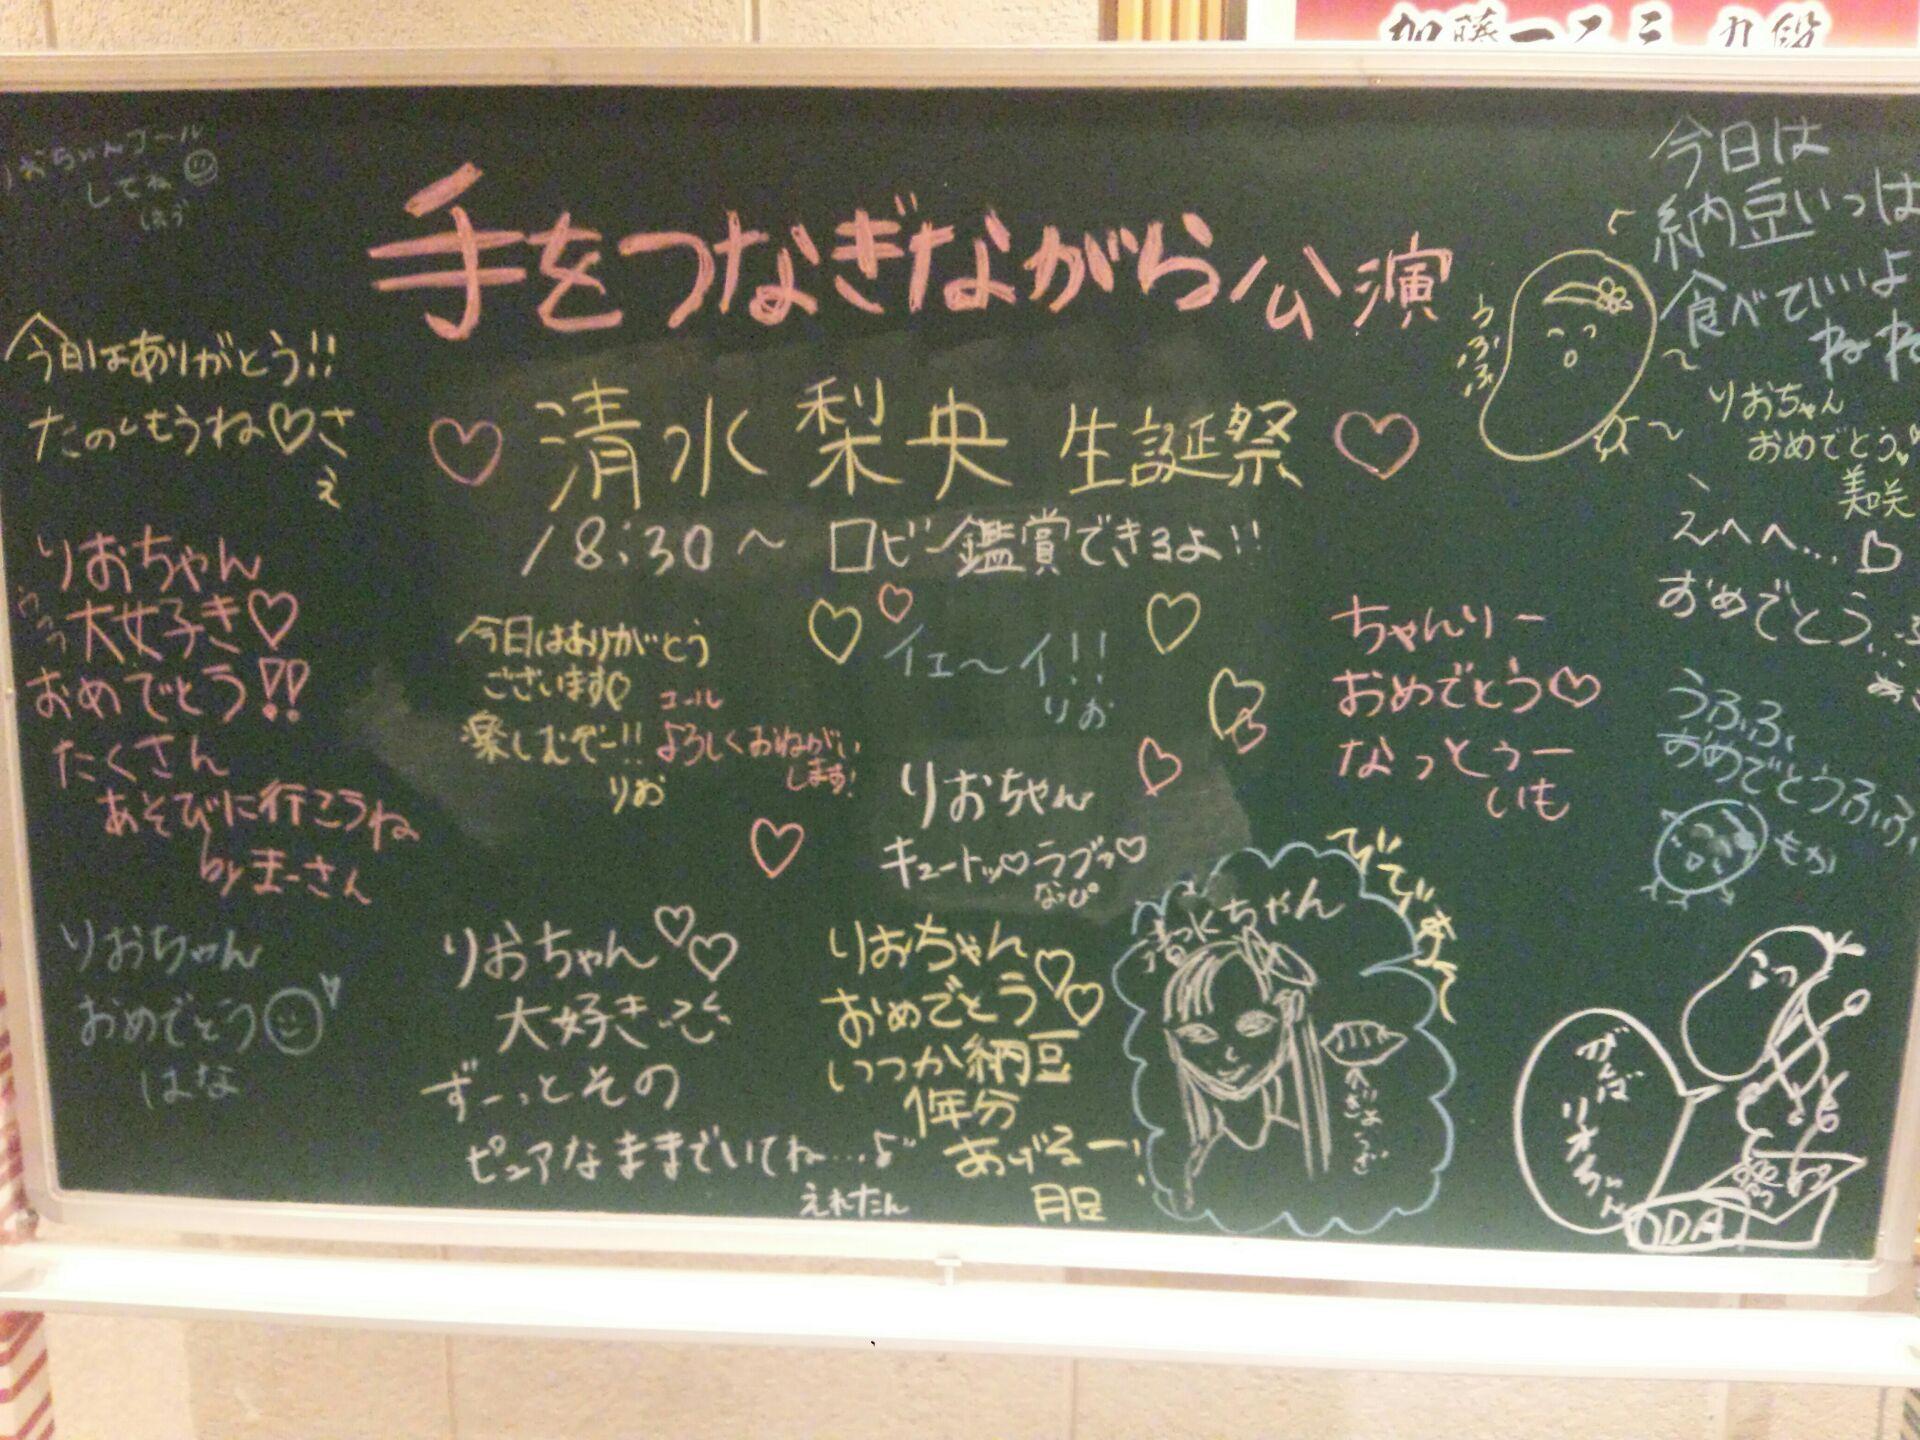 加藤一二三 九段
りおちゃんコール
してね
はづ
手をつなぎながら公演
清水 梨央 生誕祭
18:30〜 ロビー鑑賞できるよ!!
今日はありがとう!!
たのしもうね♡さ
え
りおちゃん
大好き♡
おめでとう!!
たくさん
あそびに行こうね
by まーさん
りおちゃん
おめでとう
はな
今日はありがとう
ございます♡
楽しむぞー!!
りお
コール
よろしくおねがい
します!
イェ〜イ!!
りお
りおちゃん
キュートッ♡ラブっ♡
なっぴ
りおちゃん
大好き
ずーっとその
ピュアなままでいてね…
えれたん
りおちゃん
おめでとう♡♡
いつか納豆
1年分
あげるー!
清水ちゃん
ちゃんりー
おめでとう♡
なっとぅー
いも
今日は
納豆いっぱ
食べていいよ
ねね
うふふ
りおちゃん
おめでとう
美咲
えへへ…
おめでとう…
うふふ、
おめでとうふふふ
もか
がんば
リオちゃん
ODA